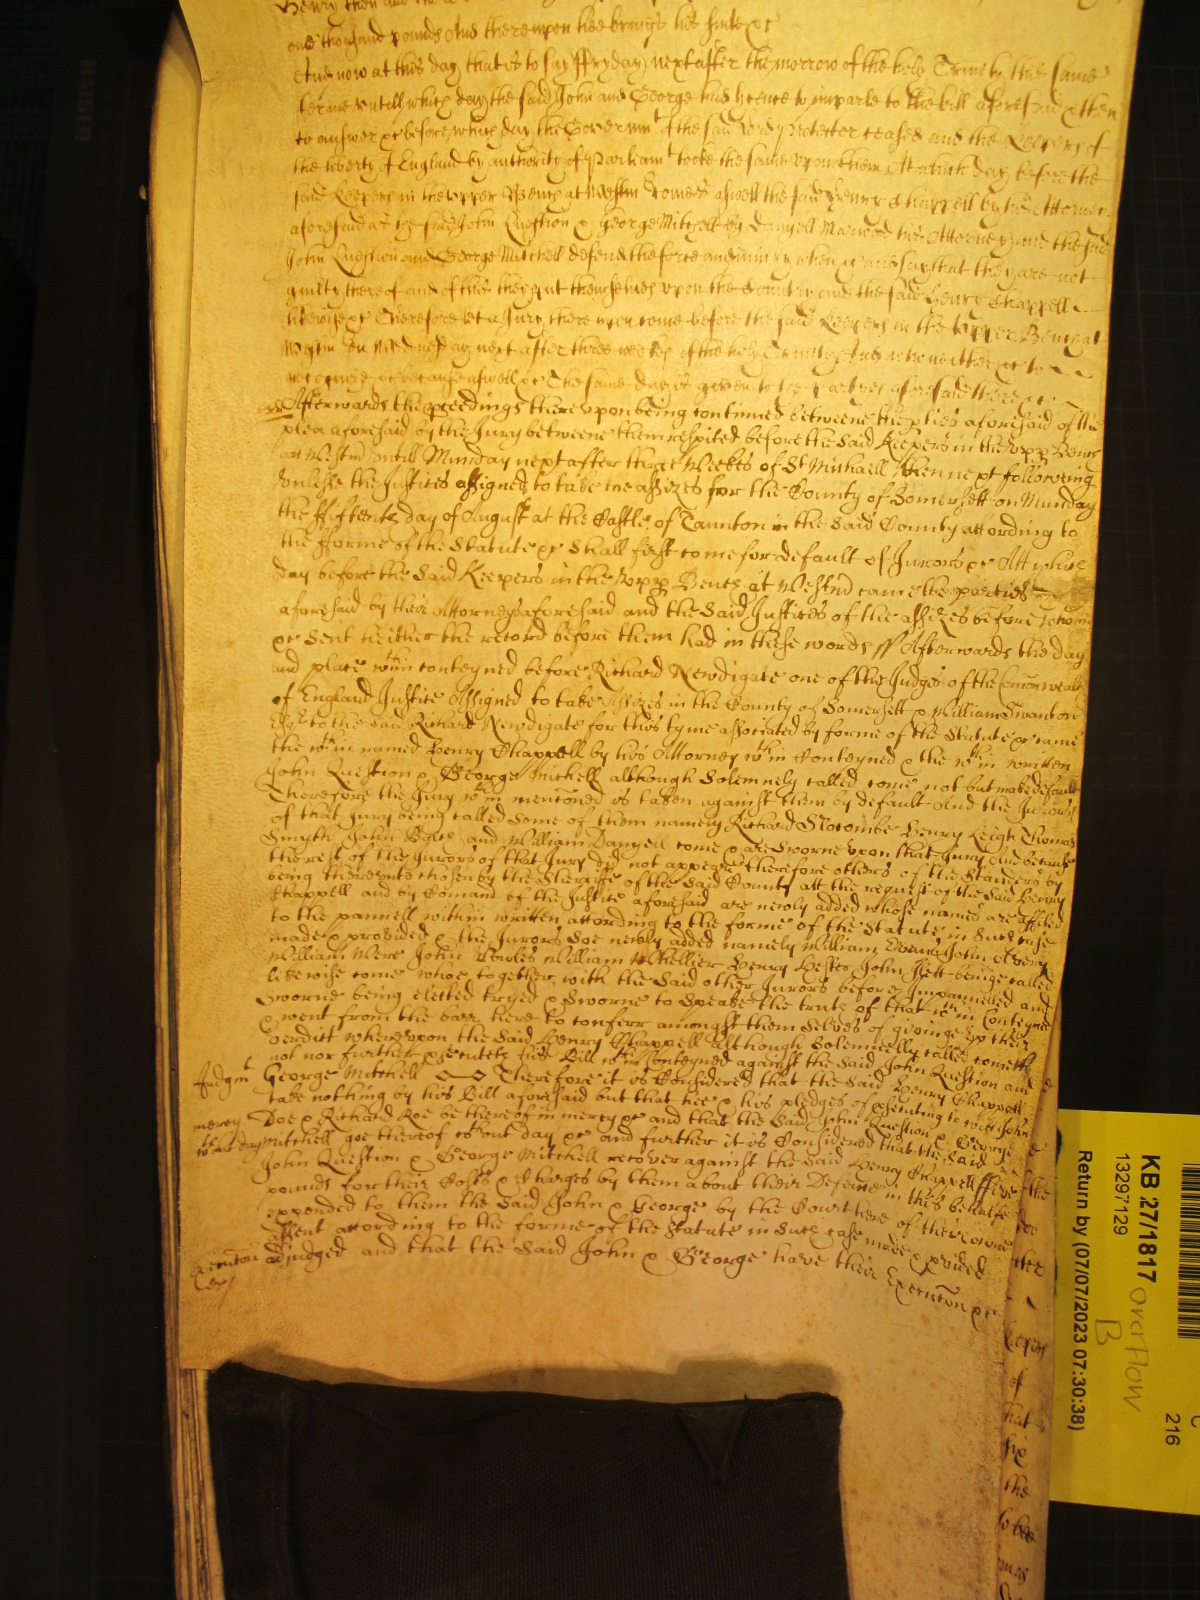 Henry then and
one thousand pounds And thereupon hee brings his suite &c
And now at this day that is to say ffryday next after the morrow of the holy Trinity this same
terme untill which day the said John and George had licence to imparle to the bill aforesaid & then
to answer &c before which day the Governmt of the said Lord Protector ceased and the Keepers of
the liberty of England by authority of Parliamt tooke the same upon them Att which day before the
said Keepers in the upper Bench at Westm comes aswell the said Henry Chappell by his Attorney
aforesaid as the said John Question & George Mitchell by Danyell their Attorney and the said
John Question and George Mitchell defend the force and iniury when &c and say that they are not
guilty thereof and of this they put themselves upon the Country and the said Henry Chappell
likewise &c Therefore let a Jury thereupon come before the said Keepers in the upper Bench at
Westm on Wednesday next after three weekes of the holy Trinity And who neither &c to
recognize &c because aswell &c The same day is given to the partyes aforesaid there &c
Afterwards the pceedings thereupon being continued betweene the pties aforesaid of the
plea aforesaid by the Jury betweene them respited before the said Keepers in the upp Bench
att Westm untill Munday next after three Weekes of St Michaell then next following
Unlesse the Justices assigned to take the assizes for the County of Somersett on Munday
the ffifteenth day of August at the Castle of Taunton in the said County according to
the fforme of the Statute &c shall first come for default of Jurors &c Att which
day before the said Keepers in the Upp Bench at Westm came the parties
aforesaid by their Attorneys aforesaid and the said Justices of the assizes before whom
&c sent heither the record before them had in these words ss Afterwards the day
and place wthin conteyned before Richard Newdigate one of the Judges of the Comonwealth
of England Justice Assigned to take Assizes in the County of Somersett & William Swanton
Esqr to the said Richard Newdigate for this tyme associated by forme of the Statute &c came
the wthin named Henry Chappell by his Attorney wthin Conteyned & the wthin written
John Question & George Mitchell although solemnely called come not but make default
Therefore the Jury wthin mentoned is taken against them by default And the Jurors
of that Jury being called some of them namely Richard Slocombe Henry Leigh Thomas
Smyth John and William Danyell come & are sworne upon that Jury And because
the rest of the Jurors of that Jury did not appeare therefore others of the standers by
being thereunto chosen by the Sherriffe of the said County att the request of the said Henry
Chappell and by Comand of the Justice aforesaid are newly added whose names are affiled
to the pannell within written according to the forme of the Statute in such case
made & provided & the Jurors soe newly added namely William Evans John Avery
William Were John Bowles William Henry Hester John Hett being called
likewise come whoe together with the said other Jurors before Impannelled and
sworne being elected tryed & sworne to speake the truth of that wthin Conteyned
& went from the barr here to conferr amongst them selves of giveinge upp their
verdict whereupon the said Henry Chappell although solemnelly called cometh
not nor further psecuteth his Bill wthin Conteyned against the said John Question and
Judgmt George Mitchell Therefore it is Considered that the said Henry Chappell
take nothing by his Bill aforesaid but that hee & his pledges of psecuting to witt John
mercy Doe & Richard Roe be thereof in mercy &c and that the said John Question & George
wthout day Mitchell goe thereof wthout day &c and further it is Considered that the said
John Question & George Mitchell recover against the said Henry Chappell ffive
pounds for their Costs & Charges by them about their Defence in this behalfe
expended to them the said John & George by the Court here of their owne
assent according to the forme of the Statute in such case made & pvided
Executon adjudged and that the said John & George have their Executon &c
the
ther
Keepers
of
that
six
the
to bee
KB 27/1817 overflow
13297129 B
Return by (07/07/2023 07:30:38)
C
216